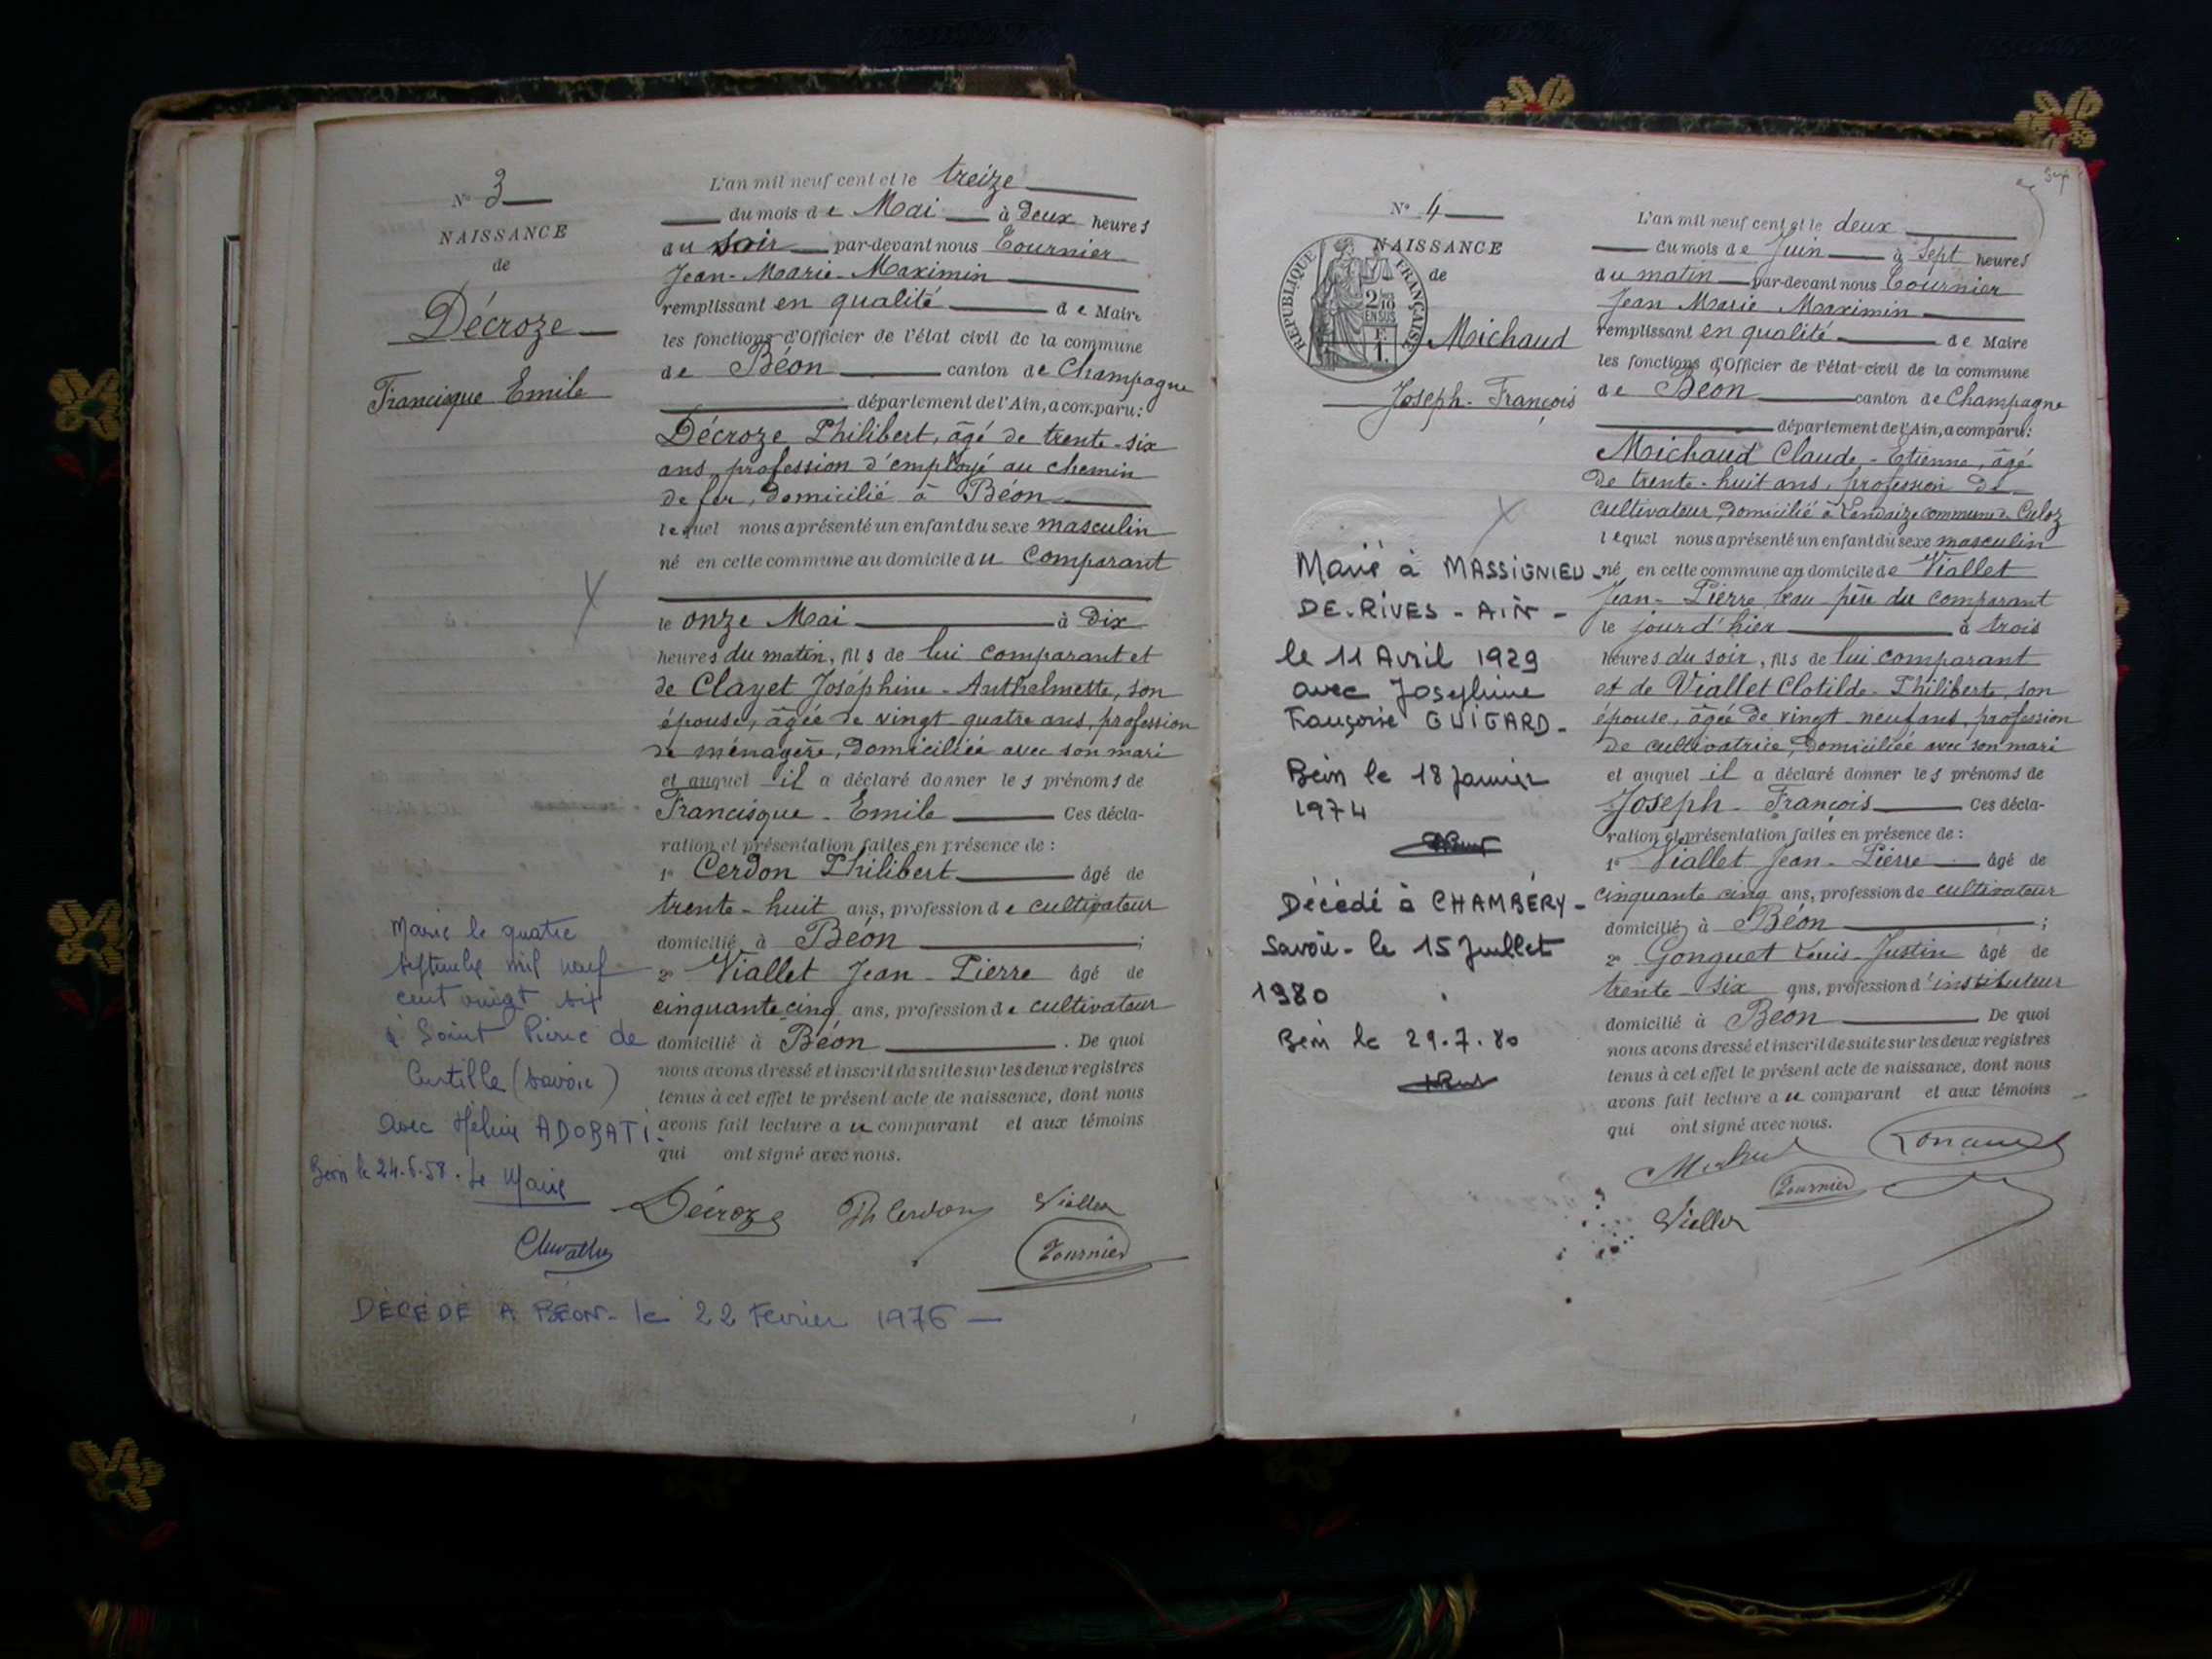 N° 3
NAISSANCE
de
Décroze
Francisque Emile
L'an mil neuf cent et le treize
du mois de Mai à deux heures
du soir par-devant nous Tournier
Jean-Marie-Maximin
remplissant en qualité de Maire
les fonctions d'Officier de l'état civil de la commune
de Béon canton de Champagne
département de l'Ain, a comparu:
Décroze Philibert, âgé de trente-six
ans, profession d'employé au chemin
de fer, domicilié à Béon
lequel nous a présenté un enfant du sexe masculin
né en cette commune au domicile du comparant
le onze Mai à dix
heures du matin, fils de lui comparant et
de Clayet Joséphine-Anthelmette, son
épouse, âgée de vingt quatre ans, profession
de ménagère, domiciliée avec son mari
et auquel il a déclaré donner les prénoms de
Francisque-Emile Ces décla-
ration et présentation faites en présence de :
1° Cerdon Philibert âgé de
trente-huit ans, profession de cultivateur
domicilié à Béon ;
2° Viallet Jean-Pierre âgé de
cinquante cinq ans, profession de cultivateur
domicilié à Béon . De quoi
nous avons dressé et inscrit de suite sur les deux registres
tenus à cet effet le présent acte de naissance, dont nous
avons fait lecture au comparant et aux témoins
qui ont signé avec nous.
Marié le quatre
septembre mil neuf
cent vingt six
à Saint Pierre de
Curtille (Savoie)
avec Hélène ADOBATI.
Béon le 24.5.58. Le Maire
Décroze Ph Cerdon Viallet
Tournier
DÉCÉDÉ A BÉON - le 22 Fevrier 1976 -
N° 4
NAISSANCE
de
REPUBLIQUE FRANÇAISE
2/10
EN SUS
F.
1.
Michaud
Joseph-François
L'an mil neuf cent et le deux
du mois de Juin à sept heures
du matin par-devant nous Tournier
Jean Marie-Maximin
remplissant en qualité de Maire
les fonctions d'Officier de l'état-civil de la commune
de Béon canton de Champagne
département de l'Ain, a comparu:
Michaud Claude-Etienne, âgé
de trente-huit ans, profession de
cultivateur, domicilié à Landaize commune de Culoz
lequel nous a présenté un enfant du sexe masculin
né en cette commune au domicile de Viallet
Jean-Pierre beau père du comparant
le jour d'hier à trois
heures du soir, fils de lui comparant
et de Viallet Clotilde-Philiberte, son
épouse, âgée de vingt-neuf ans, profession
de cultivatrice, domiciliée avec son mari
et auquel il a déclaré donner les prénoms de
Joseph-François Ces décla-
ration et présentation faites en présence de :
1° Viallet Jean-Pierre âgé de
cinquante cinq ans, profession de cultivateur
domicilié à Béon ;
2° Gonguet Louis-Justin âgé de
trente-six ans, profession d'instituteur
domicilié à Béon De quoi
nous avons dressé et inscrit de suite sur les deux registres
tenus à cet effet le présent acte de naissance, dont nous
avons fait lecture au comparant et aux témoins
qui ont signé avec nous.
Marié à MASSIGNIEU-
DE-RIVES - AIN -
le 11 Avril 1929
avec Joséphine
Françoise GUIGARD-
Béon le 18 Janvier
1974
Décédé à CHAMBÉRY-
Savoie - le 15 Juillet
1980
Béon le 29.7.80
Michaud
Tournier
Viallet